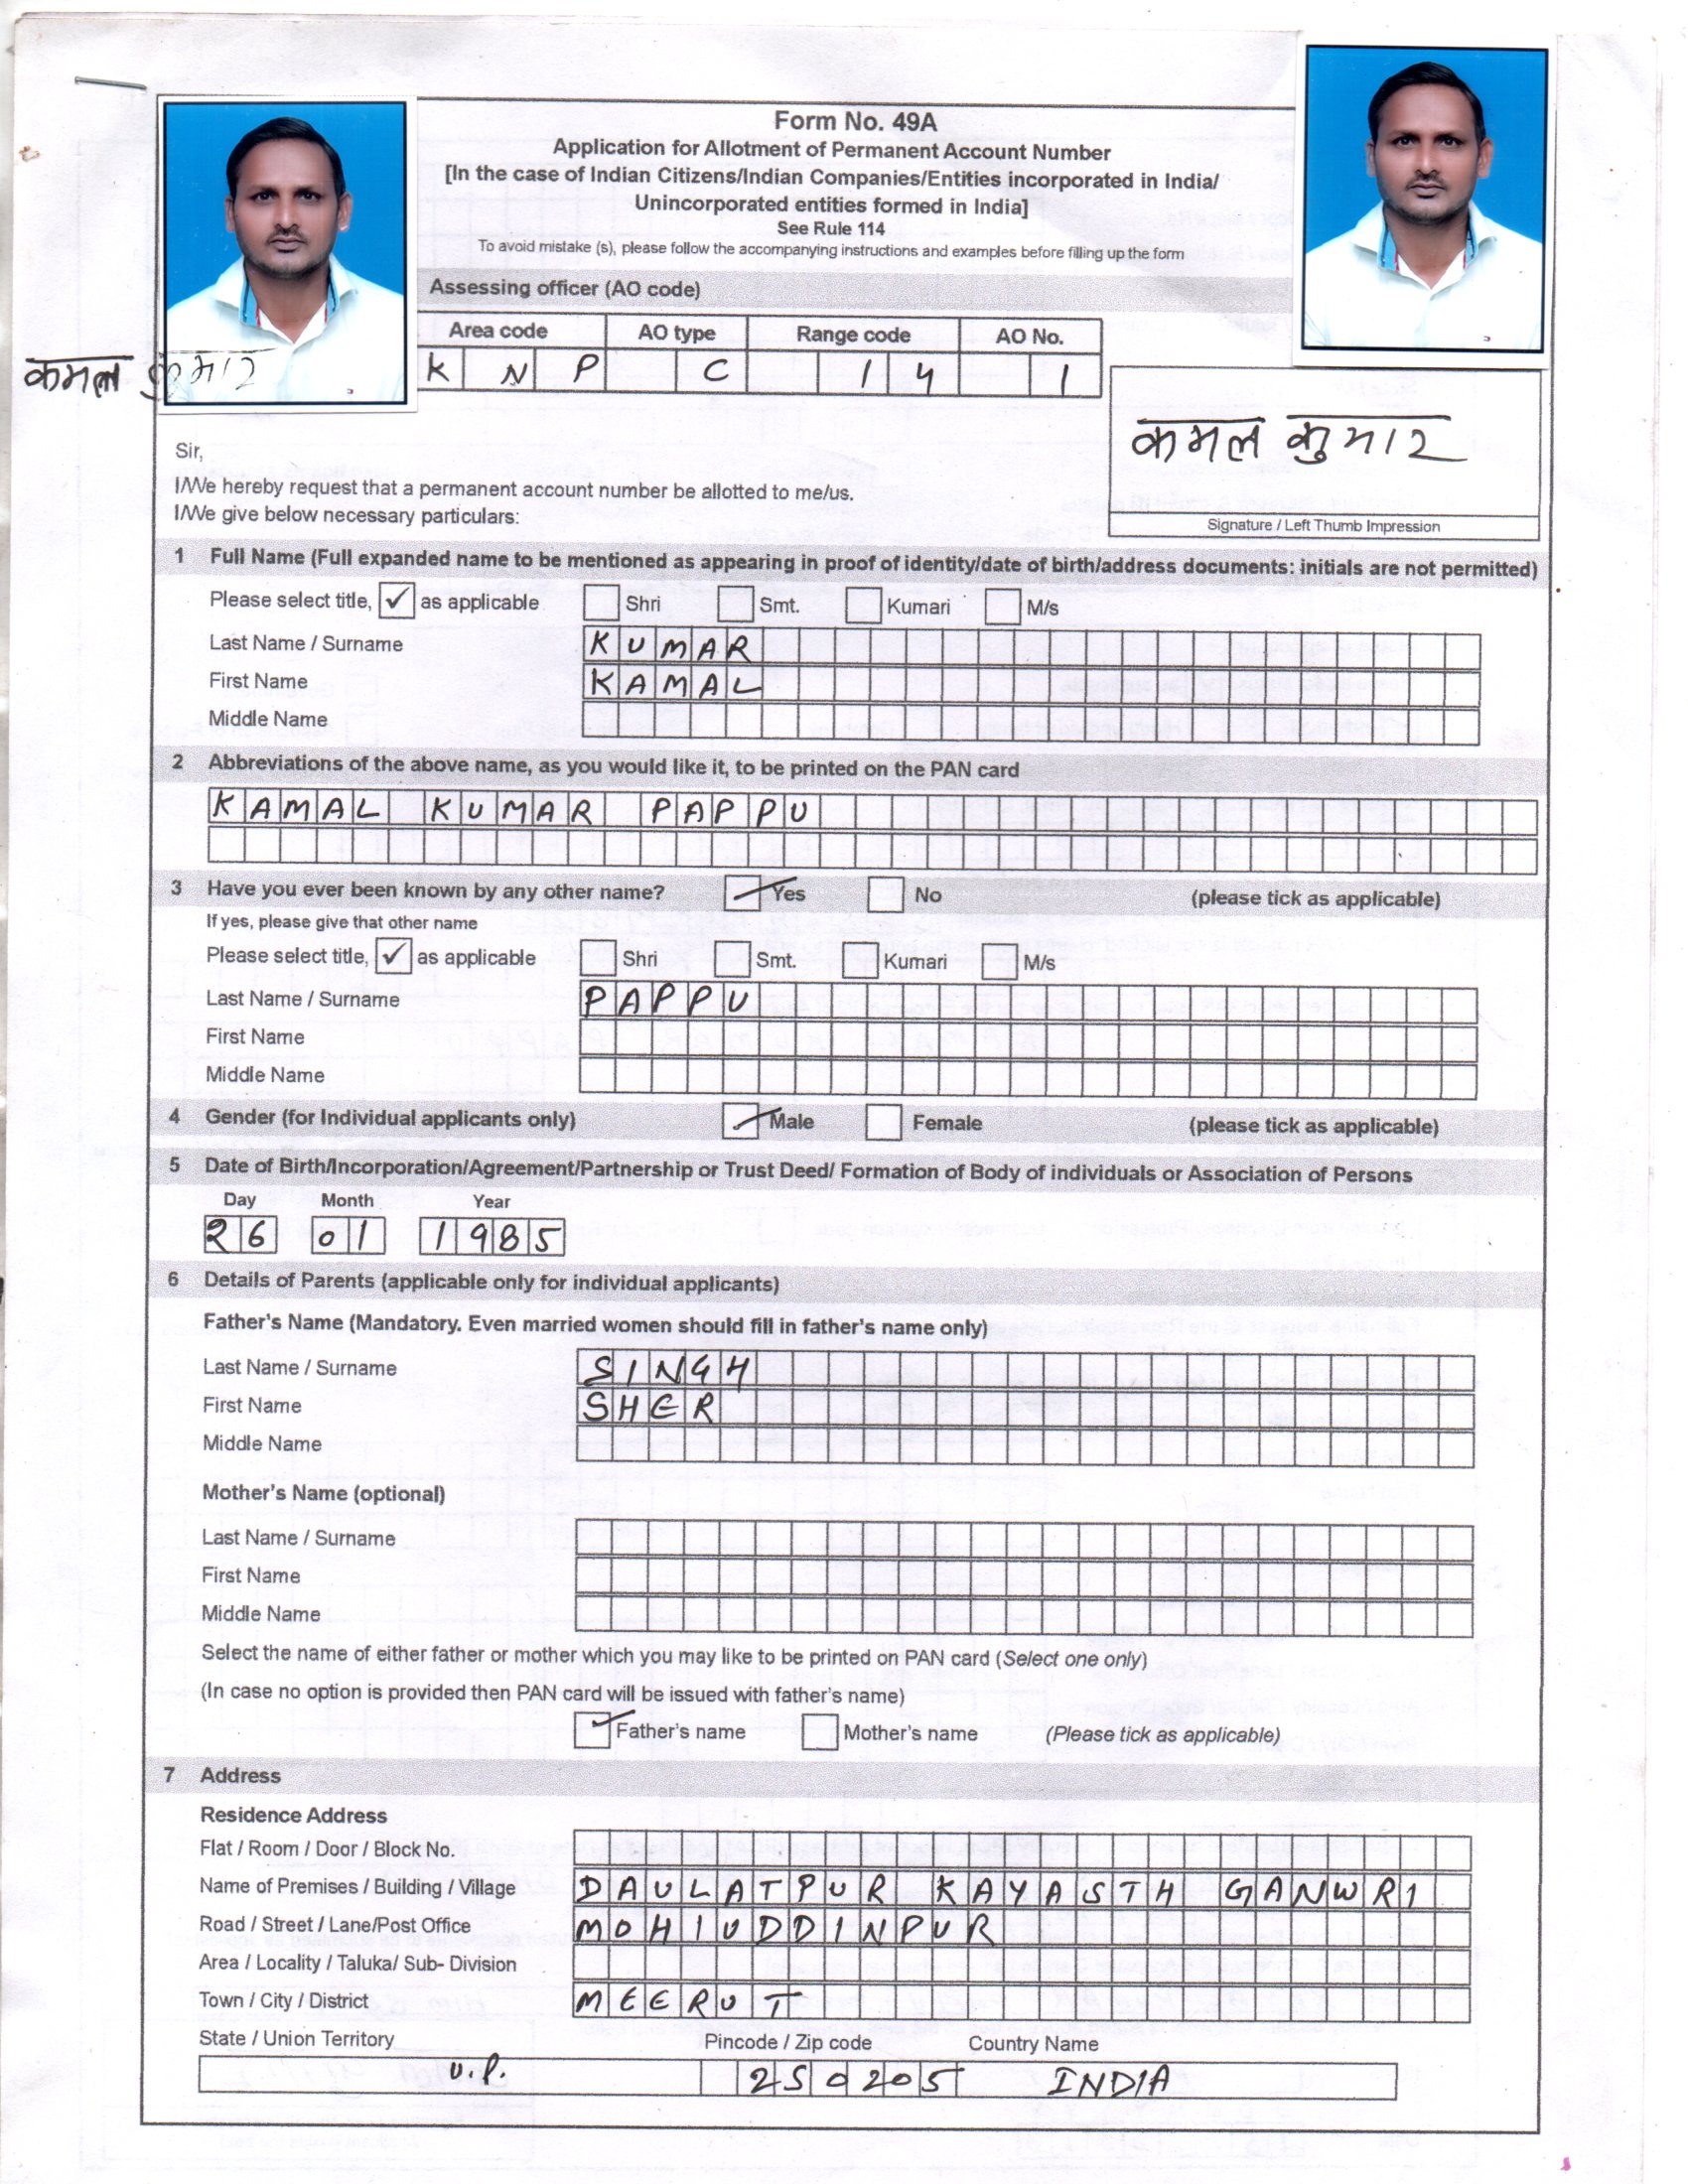 Form No. 49A
Application for Allotment of Permanent Account Number
[In the case of Indian Citizens/Indian Companies/Entities incorporated in India/
Unincorporated entities formed in India]
See Rule 114
To avoid mistake (s), please follow the accompanying instructions and examples before filling up the form
Assessing officer (AO code)
Area code AO type Range code AO No.
KNP C 14 1
कमल कुमार
कमल कुमार
Signature / Left Thumb Impression
Sir,
I/We hereby request that a permanent account number be allotted to me/us.
I/We give below necessary particulars:
1 Full Name (Full expanded name to be mentioned as appearing in proof of identity/date of birth/address documents: initials are not permitted)
Please select title, ✓ as applicable Shri Smt. Kumari M/s
Last Name / Surname KUMAR
First Name KAMAL
Middle Name
2 Abbreviations of the above name, as you would like it, to be printed on the PAN card
KAMAL KUMAR PAPPU
3 Have you ever been known by any other name? Yes No (please tick as applicable)
If yes, please give that other name
Please select title, ✓ as applicable Shri Smt. Kumari M/s
Last Name / Surname PAPPU
First Name
Middle Name
4 Gender (for Individual applicants only) Male Female (please tick as applicable)
5 Date of Birth/Incorporation/Agreement/Partnership or Trust Deed/ Formation of Body of individuals or Association of Persons
Day Month Year
26 01 1985
6 Details of Parents (applicable only for individual applicants)
Father's Name (Mandatory. Even married women should fill in father's name only)
Last Name / Surname SINGH
First Name SHER
Middle Name
Mother's Name (optional)
Last Name / Surname
First Name
Middle Name
Select the name of either father or mother which you may like to be printed on PAN card (Select one only)
(In case no option is provided then PAN card will be issued with father's name)
Father's name Mother's name (Please tick as applicable)
7 Address
Residence Address
Flat / Room / Door / Block No.
Name of Premises / Building / Village DAULATPUR KAYASTH GANWRI
Road / Street / Lane/Post Office MOHIUDDINPUR
Area / Locality / Taluka/ Sub- Division
Town / City / District MEERUT
State / Union Territory Pincode / Zip code Country Name
U.P. 250205 INDIA